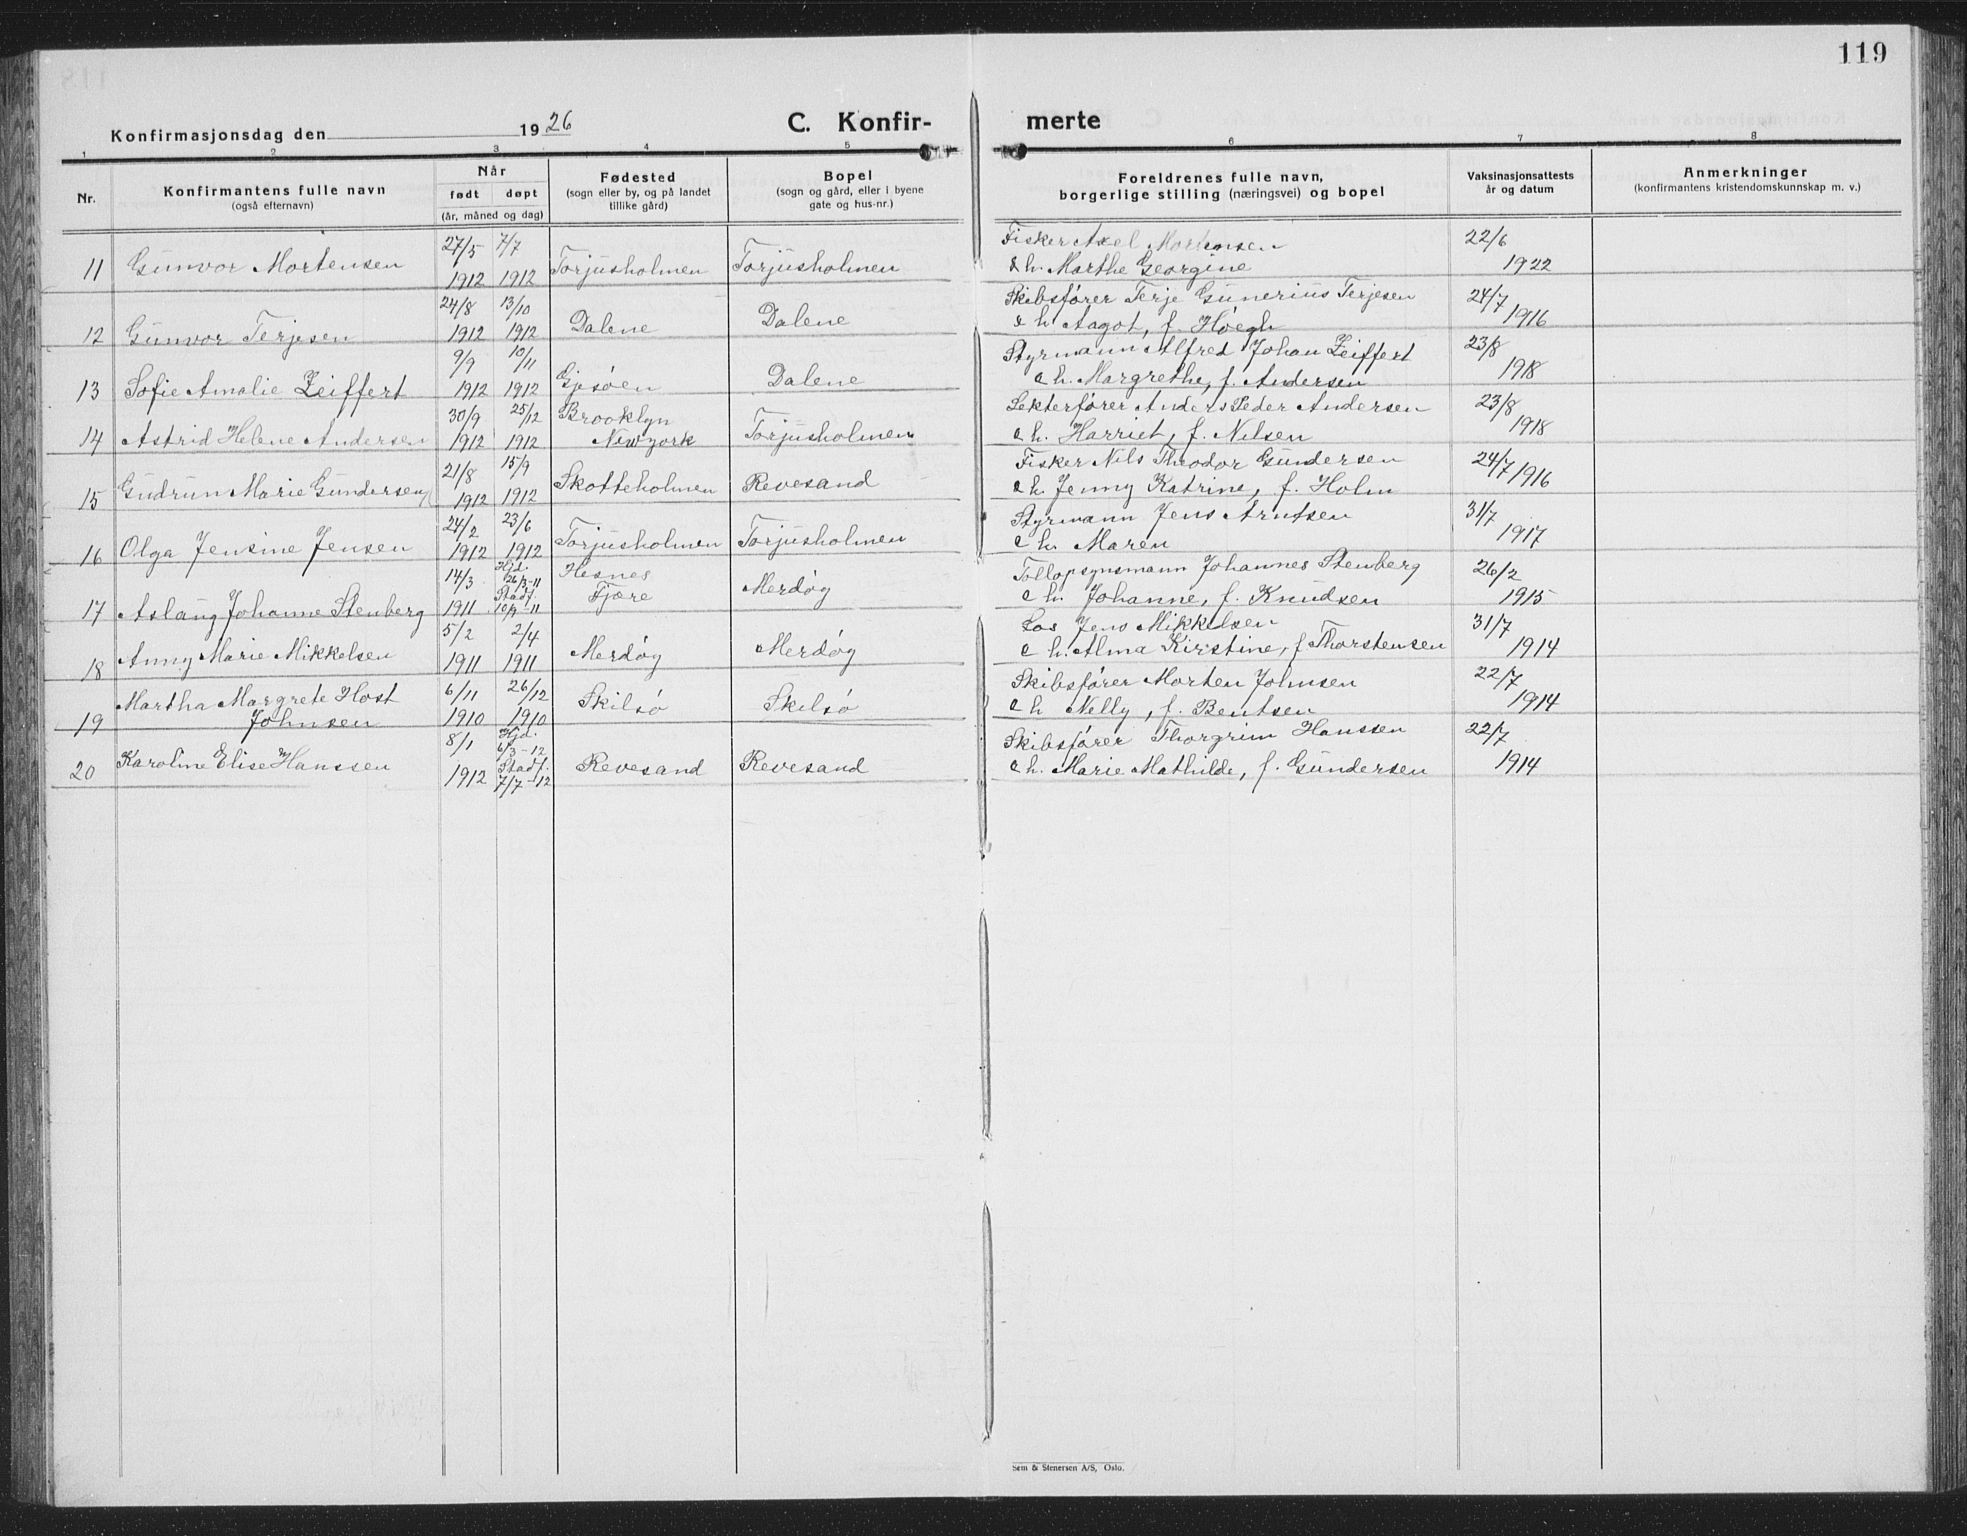 119
Konfirmasjonsdag den 1926
C. Konfir- merte
1 2 3 4 5 6 7 8
Nr.
Konfirmantens fulle navn
(også efternavn)
Når
født døpt
(år, måned og dag)
Fødested
(sogn eller by, og på landet
tillike gård)
Bopel
(sogn og gård, eller i byene
gate og hus-nr.)
Foreldrenes fulle navn,
borgerlige stilling (næringsvei) og bopel
Vaksinasjonsattests
år og datum
Anmerkninger
(konfirmantens kristendomskunnskap m. v.)
27/5 7/7 Fisker Axel Mortensen 22/6
11 Gunvor Mortensen 1912 1912 Torjusholmen Torjusholmen & h. Marthe Georgine 1922
24/8 13/10 Skibsfører Terje Gunerius Terjesen 24/7
12 Gunvor Terjesen 1912 1912 Dalene Dalene & h. Aagot, f. Høegh 1916
9/9 10/11 Styrmann Alfred Johan Zeiffert 23/8
13 Sofie Amalie Zeiffert 1912 1912 Gjesøen Dalene & h. Margrethe, f. Andersen 1918
30/9 25/12 Brooklyn Lekterfører Anders Peder Andersen 23/8
14 Astrid Helene Andersen 1912 1912 Newyork Torjusholmen & h. Harriet, f. Nilsen 1918
21/8 15/9 Fisker Nils Theodor Gundersen 24/7
15 Gudrun Marie Gundersen 1912 1912 Skotteholmen Revesand & h. Jenny Katrine, f. Holm 1916
24/2 23/6 Styrmann Jens Arntsen 31/7
16 Olga Jensine Jensen 1912 1912 Torjusholmen Torjusholmen & h. Maren 1917
14/3 Hjd. 26/3-11 Hesnes Tollopsynsmann Johannes Stenberg 26/2
17 Aslaug Johanne Stenberg 1911 Stadf. 10/9-11 Fjære Merdøy & h. Johanne, f. Knudsen 1915
5/2 2/4 Los Jens Mikkelsen 31/7
18 Anny Marie Mikkelsen 1911 1911 Merdøy Merdøy & h. Alma Kirstine, f. Thorstensen 1914
Martha Margrete Høst 6/11 26/12 Skilsø Skilsø Skibsfører Morten Johnsen 22/7
19 Johnsen 1910 1910 & h Nelly, f. Bentsen 1914
8/1 Hjd. 6/3-12 Skibsfører Thorgrim Hanssen 22/7
20 Karoline Elise Hanssen 1912 Stadf. 7/7-12 Revesand Revesand & h. Marie Mathilde, f. Gundersen 1914
Sem & Stenersen A/S, Oslo.